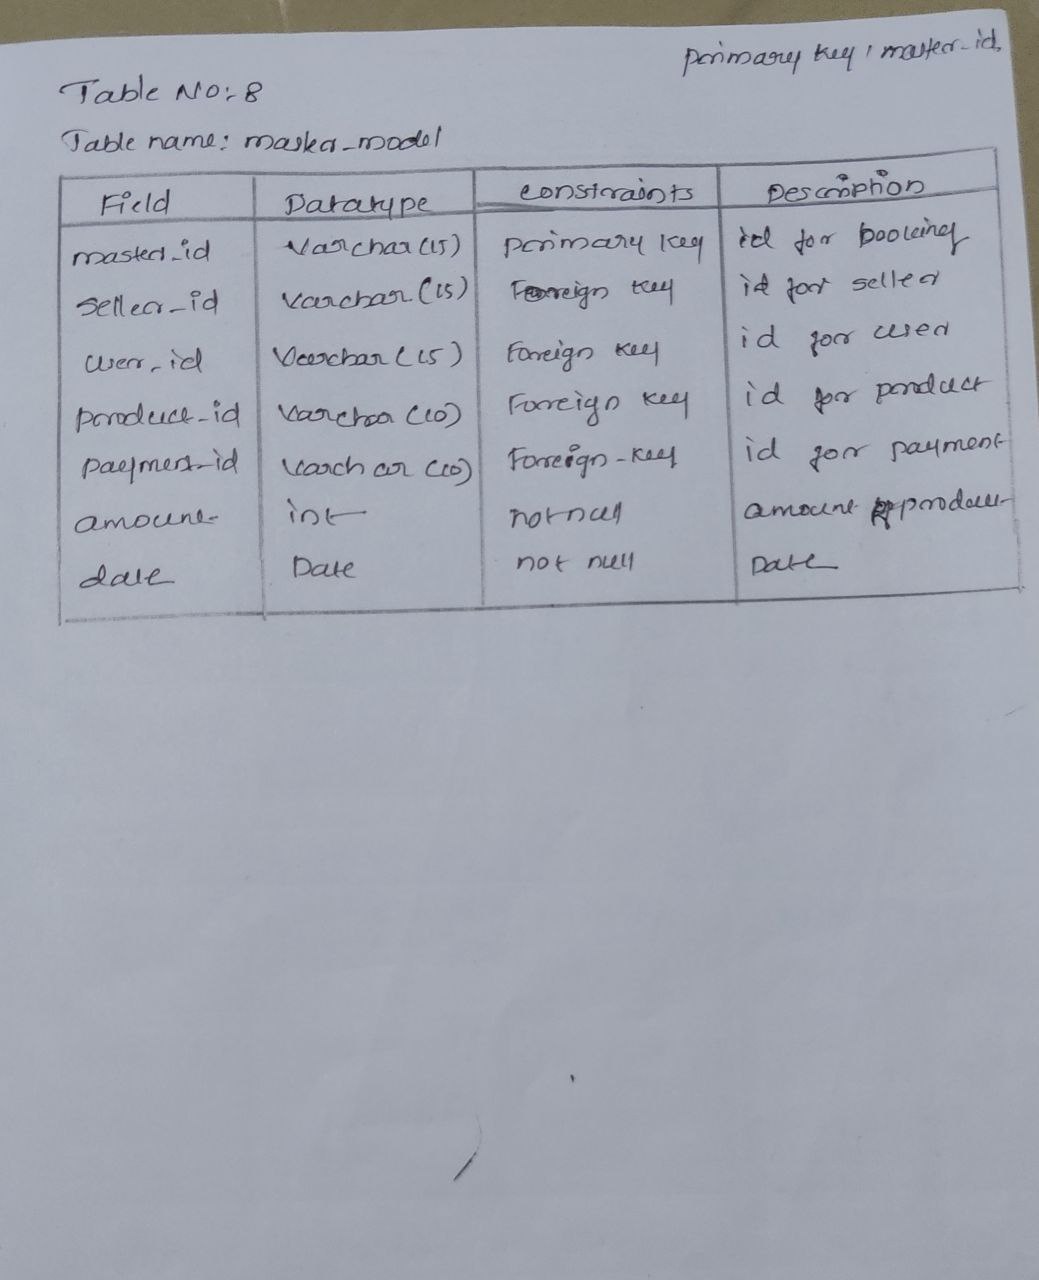 Primary key : master_id
Table No:- 8
Table name: master_model
Field Datatype constraints Description
master_id Varchar(15) primary key id for booking
seller_id Varchar(15) Foreign key id for seller
user_id Varchar(15) Foreign key id for user
product_id Varchar(10) Foreign key id for product
payment_id Varchar(10) Foreign-key id for payment
amount int not null amount of product
date Date not null Date